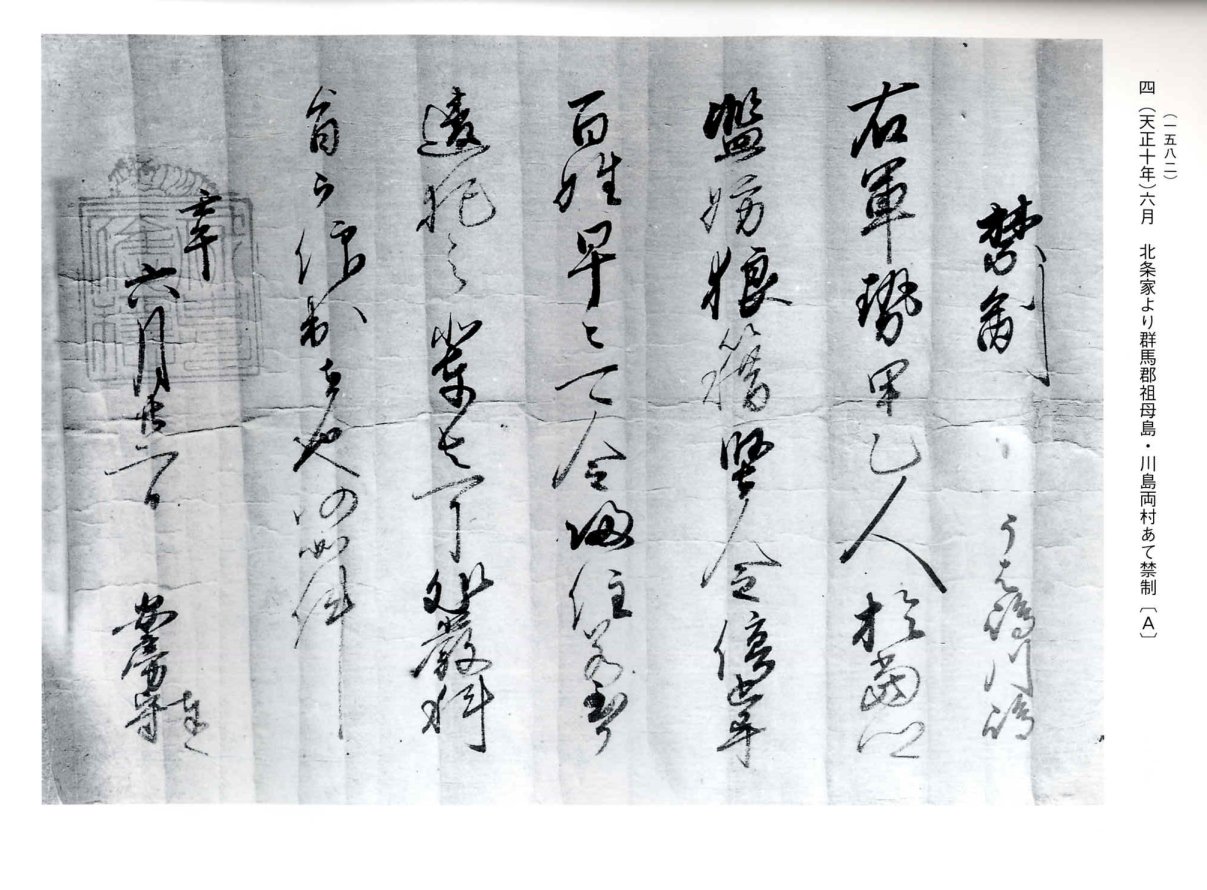 (一五八二)
四 (天正十年)六月 北条家より群馬郡祖母島・川島両村あて禁制〔A〕
禁制 うは嶋川嶋
右軍勢甲乙人、於当郷
濫妨狼藉堅令停止畢
百姓早々可令帰住、若至于
違犯之輩者、可処厳科
旨被仰出者也、仍如件
壬午
六月廿二日
奉之
安房守